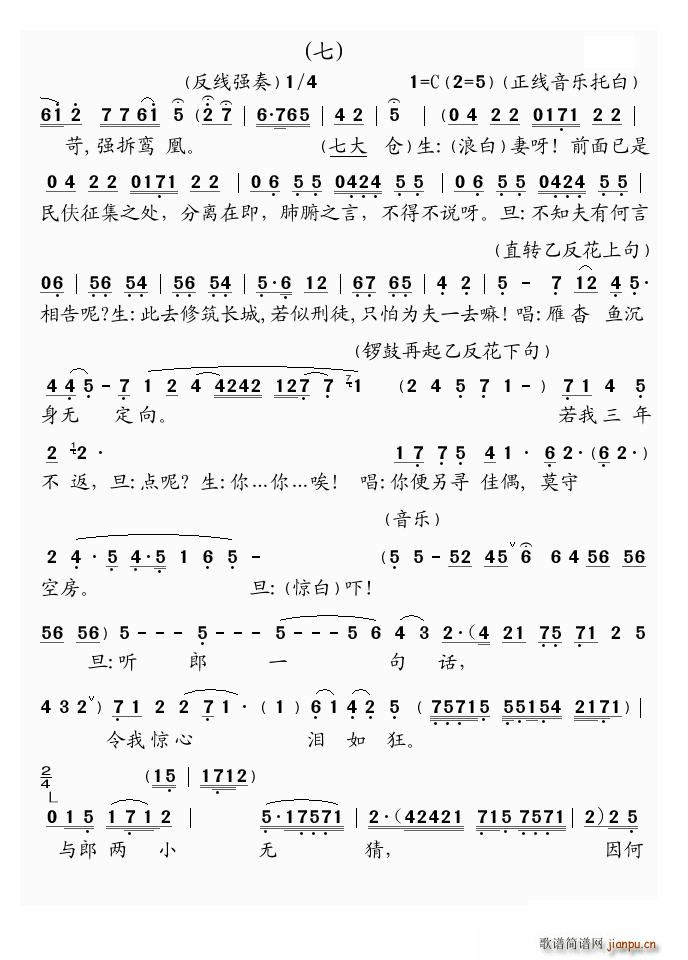 (七)
(反线强奏) 1/4 1=C (2=5) (正线音乐托白)
6 1 2 7 7 6 1 5 (2 7 | 6·765 | 4 2 | 5 ) (0 4 2 2 0171 2 2
苛, 强拆鸾 凰。 (七大 仓) 生: (浪白) 妻呀! 前面已是
0 4 2 2 0171 2 2 | 0 6 5 5 0424 5 5 | 0 6 5 5 0424 5 5 |
民伕征集之处, 分离在即, 肺腑之言, 不得不说呀。旦: 不知夫有何言
(直转乙反花上句)
06 | 56 54 | 56 54 | 5·6 12 | 67 65 | 4 2 | 5 - 7 12 4 5·
相告呢? 生: 此去修筑长城, 若似刑徒, 只怕为夫一去嘛! 唱: 雁杳 鱼沉
(锣鼓再起乙反花下句)
4 4 5 - 7 1 2 4 4242 127 7 7 1 (2 4 5 7 1 - ) 7 1 4 5
身无 定向。 若我三 年
2 1 2· 1 7 7 5 4 1· 6 2· (6 2·)
不 返, 旦: 点呢? 生: 你…你…唉! 唱: 你便另寻 佳偶, 莫守
(音乐)
2 4 · 5 4·5 1 6 5 - (5 5 - 52 45 v 6 6 4 56 56
空房。 旦: (惊白) 吓!
56 56) 5 - - - 5 - - - 5 - - - 5 6 4 3 2·(4 21 75 71 2 5
旦: 听 郎 一 句 话,
4 3 2 v) 7 1 2 2 7 1 · ( 1 ) 6 1 4 2 5 (75715 55154 2171) |
令我 惊心 泪 如 狂。
2/4 (15 | 1712)
0 1 5 1 7 1 2 | 5·17571 | 2·(42421 715 7571 | 2) 2 5
与郎 两 小 无 猜, 因何
歌谱简谱网 jianpu.cn